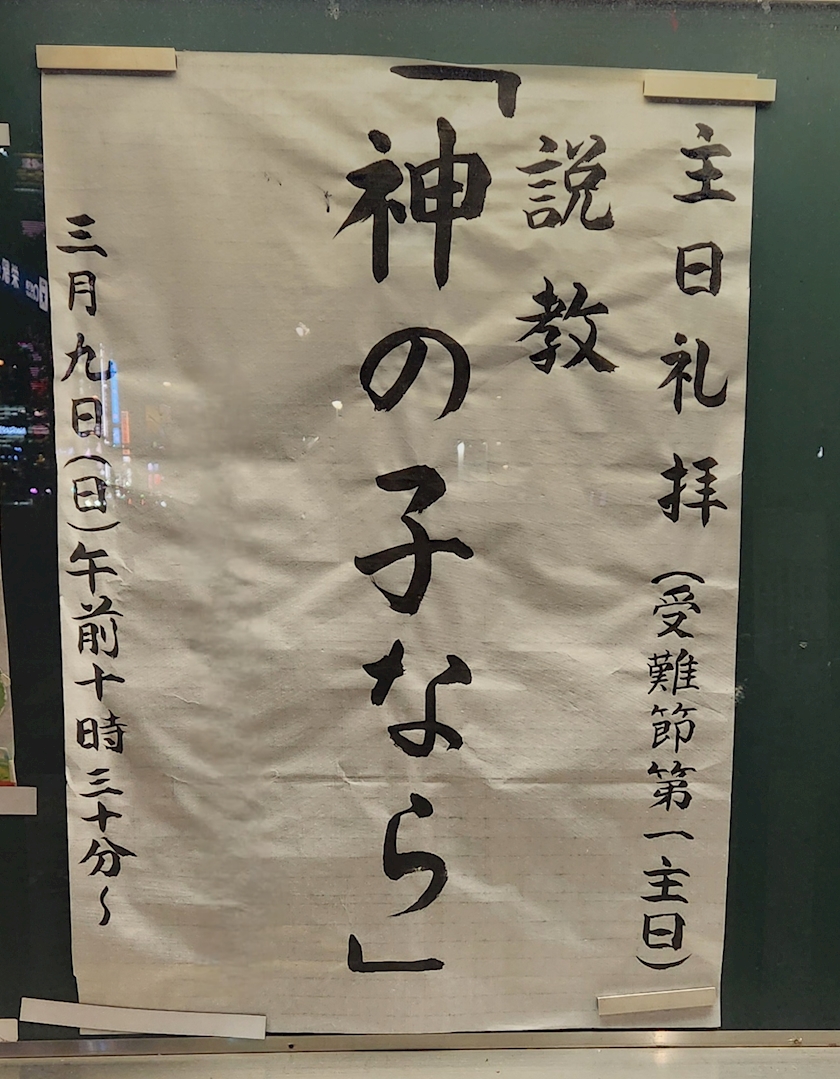 主日礼拝（受難節第一主日）
説教
「神の子なら」
三月九日（日）午前十時三十分～